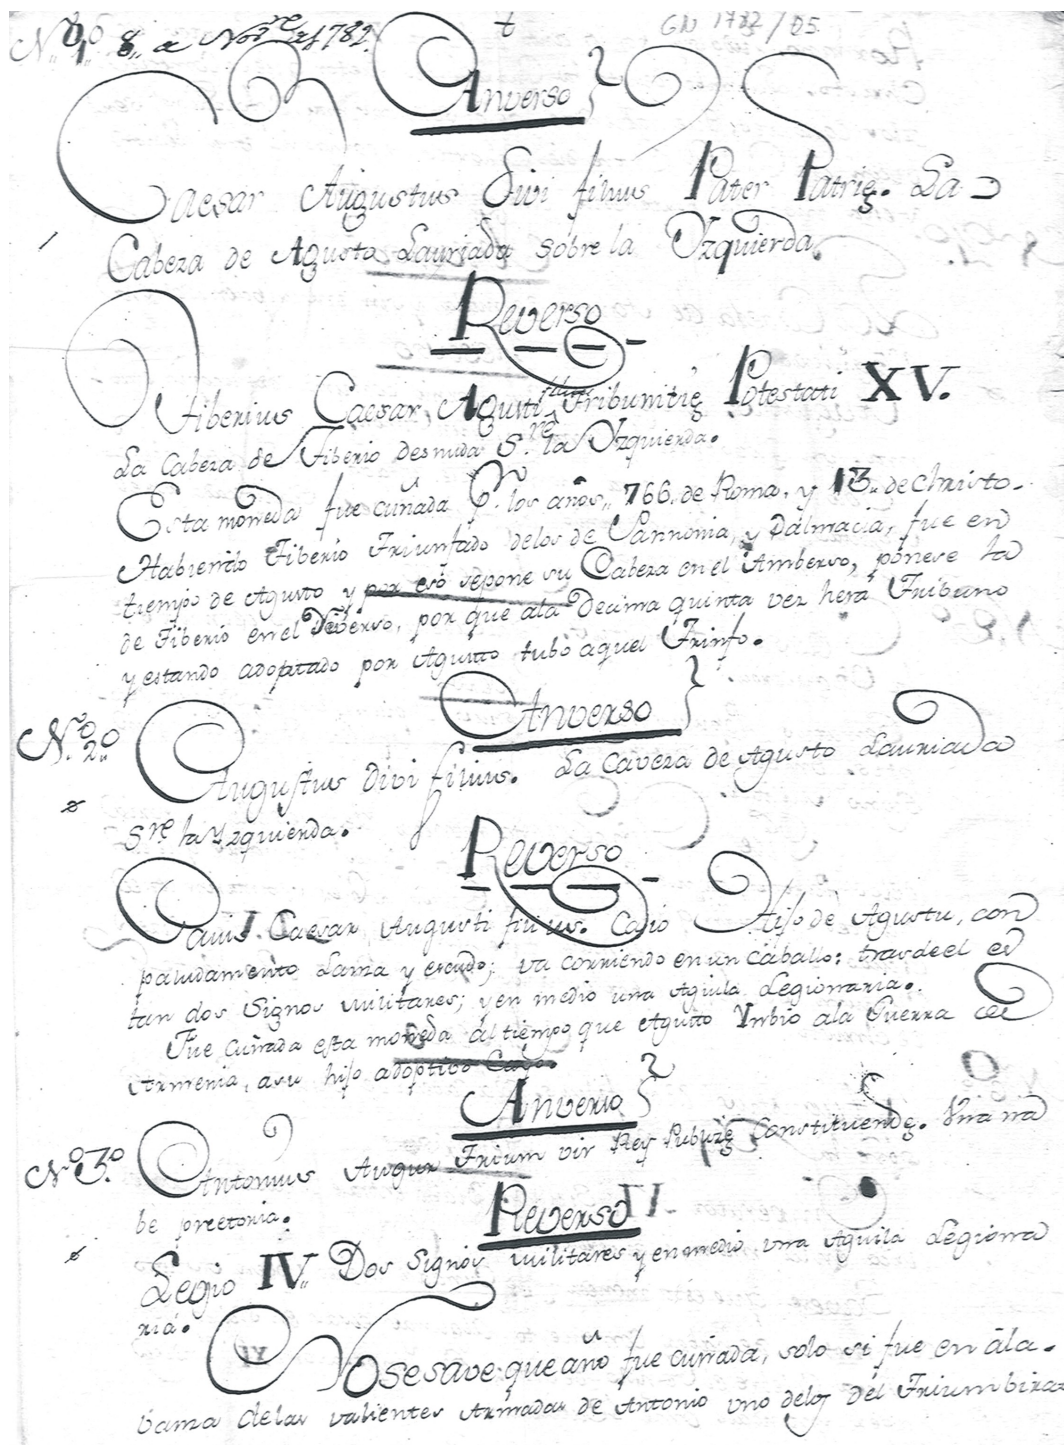 N.º 1º 8,, a Nov.re de 1782.
GN 1782/05
Anverso
Caesar Augustus Divi filius Pater Patrię. La
Cabeza de Agusto Lauriada sobre la Yzquierda.
Reverso
Tiberius Caesar Agusti filius Tribunitię Potestati XV.
La Cabeza de Tiberio desnuda S.re la Yzquierda.
Esta moneda fue cuñada P. los años,, 766,, de Roma, y 13,, de Christo.
Habiendo Tiberio Triunfado delos de Pannonia, y Dalmacia, fue en
tiempo de Agusto y por eso sepone su Cabeza en el Amberso, ponese la
de Tiberio en el Reverso, por que ala Decima quinta vez hera Tribuno
y estando adoptado por Agusto tubo aquel Trinfo.
Anverso
N.º 2º
Augustus Divi filius. La Caveza de Agusto Lauriada
S.re la Yzquierda.
Reverso
Caius Caesar Augusti filius. Cayo Hijo de Agustu, con
paludamento Lanza y escudo; va corriendo en un caballo: tras de el es
tan dos Signos militares; y en medio una Aguila Legionaria.
Fue cuñada esta moneda al tiempo que Agusto Ynbio ala Guerra de
Armenia, a su hijo adoptivo Cayo.
Anverso
N.º 3.º
Antonius Augur Trium vir Rey Publicę Constituendę. Una na
be pretoria.
Reverso
Legio IV.. Dos Signos militares y en medio una Aguila Legiona
ria.
No se save que año fue cuñada, solo si fue en ala-
banza delas valientes Armadas de Antonio uno delos del Triumbira